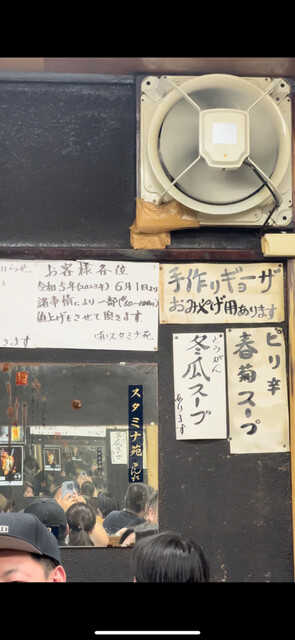 お客様各位
令和5年(2023年) 6月1日より
諸事情により一部
値上げをさせて頂きます
(有)スタミナ苑
きます
手作りギョーザ
おみやげ用あります
ピリ辛
春菊スープ
とうがん
冬瓜スープ
あります
スタミナ苑